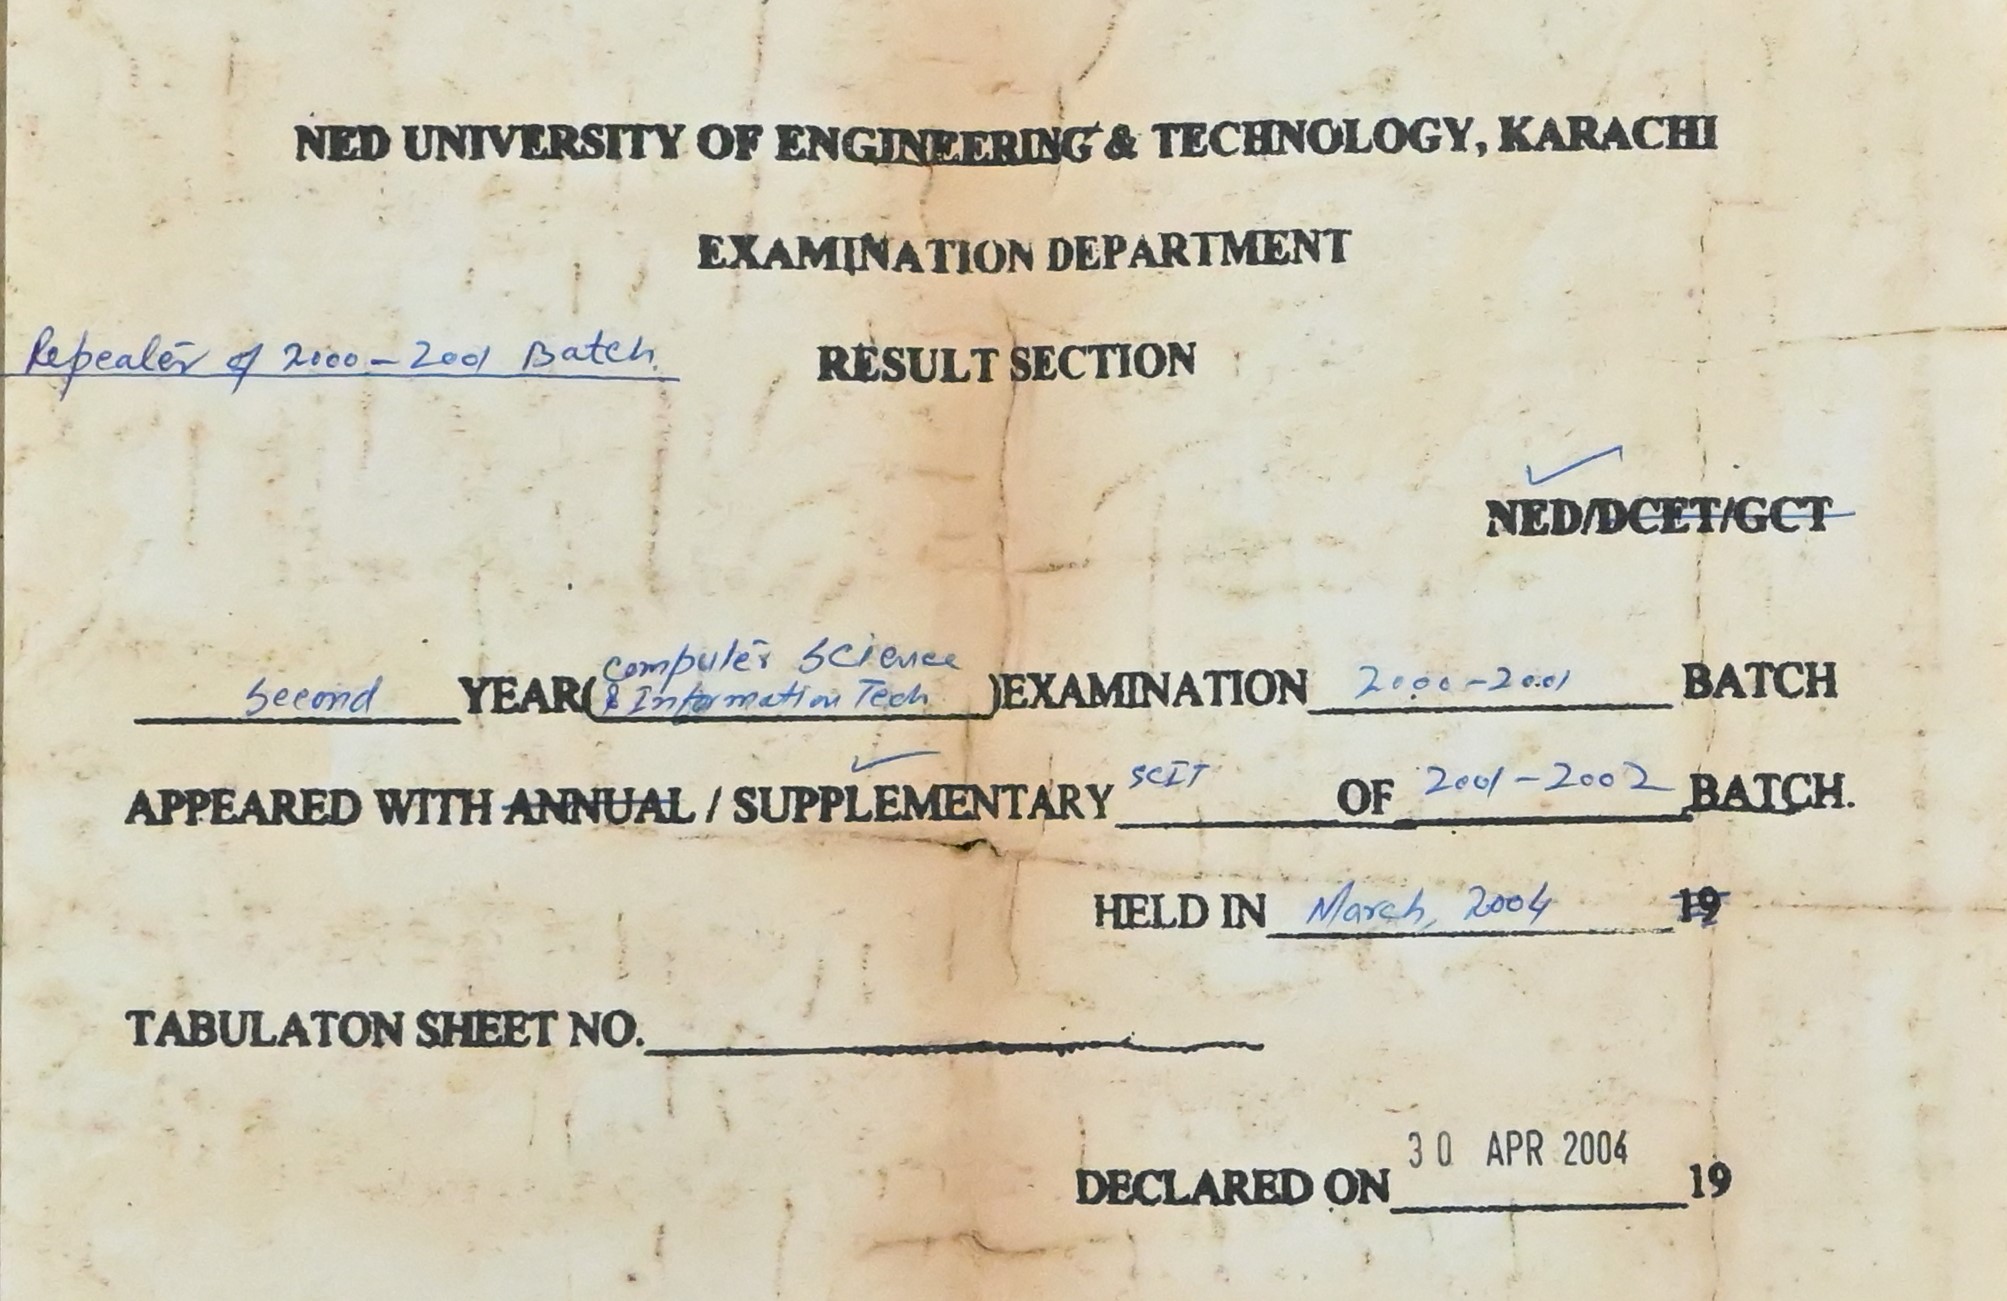 NED UNIVERSITY OF ENGINEERING & TECHNOLOGY, KARACHI
EXAMINATION DEPARTMENT
Repeater of 2000-2001 Batch.
RESULT SECTION
NED/DCET/GCT
Second YEAR( Computer Science & Information Tech )EXAMINATION 2000-2001 BATCH
APPEARED WITH ANNUAL / SUPPLEMENTARY SCIT OF 2001-2002 BATCH.
HELD IN March, 2004 19
TABULATON SHEET NO.
30 APR 2004
DECLARED ON 19